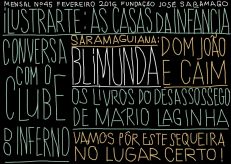 MENSAL Nº 45 FEVEREIRO 2016 FUNDAÇÃO JOSÉ SARAMAGO
iLUSTRARTE: AS CASAS DA INFÂNCIA
CONVERSA COM O CLUBE
SARAMAGUIANA: DOM JOÃO E CAIM
BLIMUNDA
OS LIVROS DO DESASSOSSEGO DE MARIO LAGINHA
8 INFERNO
VAMOS PÔR ESTE SEQUEIRA NO LUGAR CERTO!